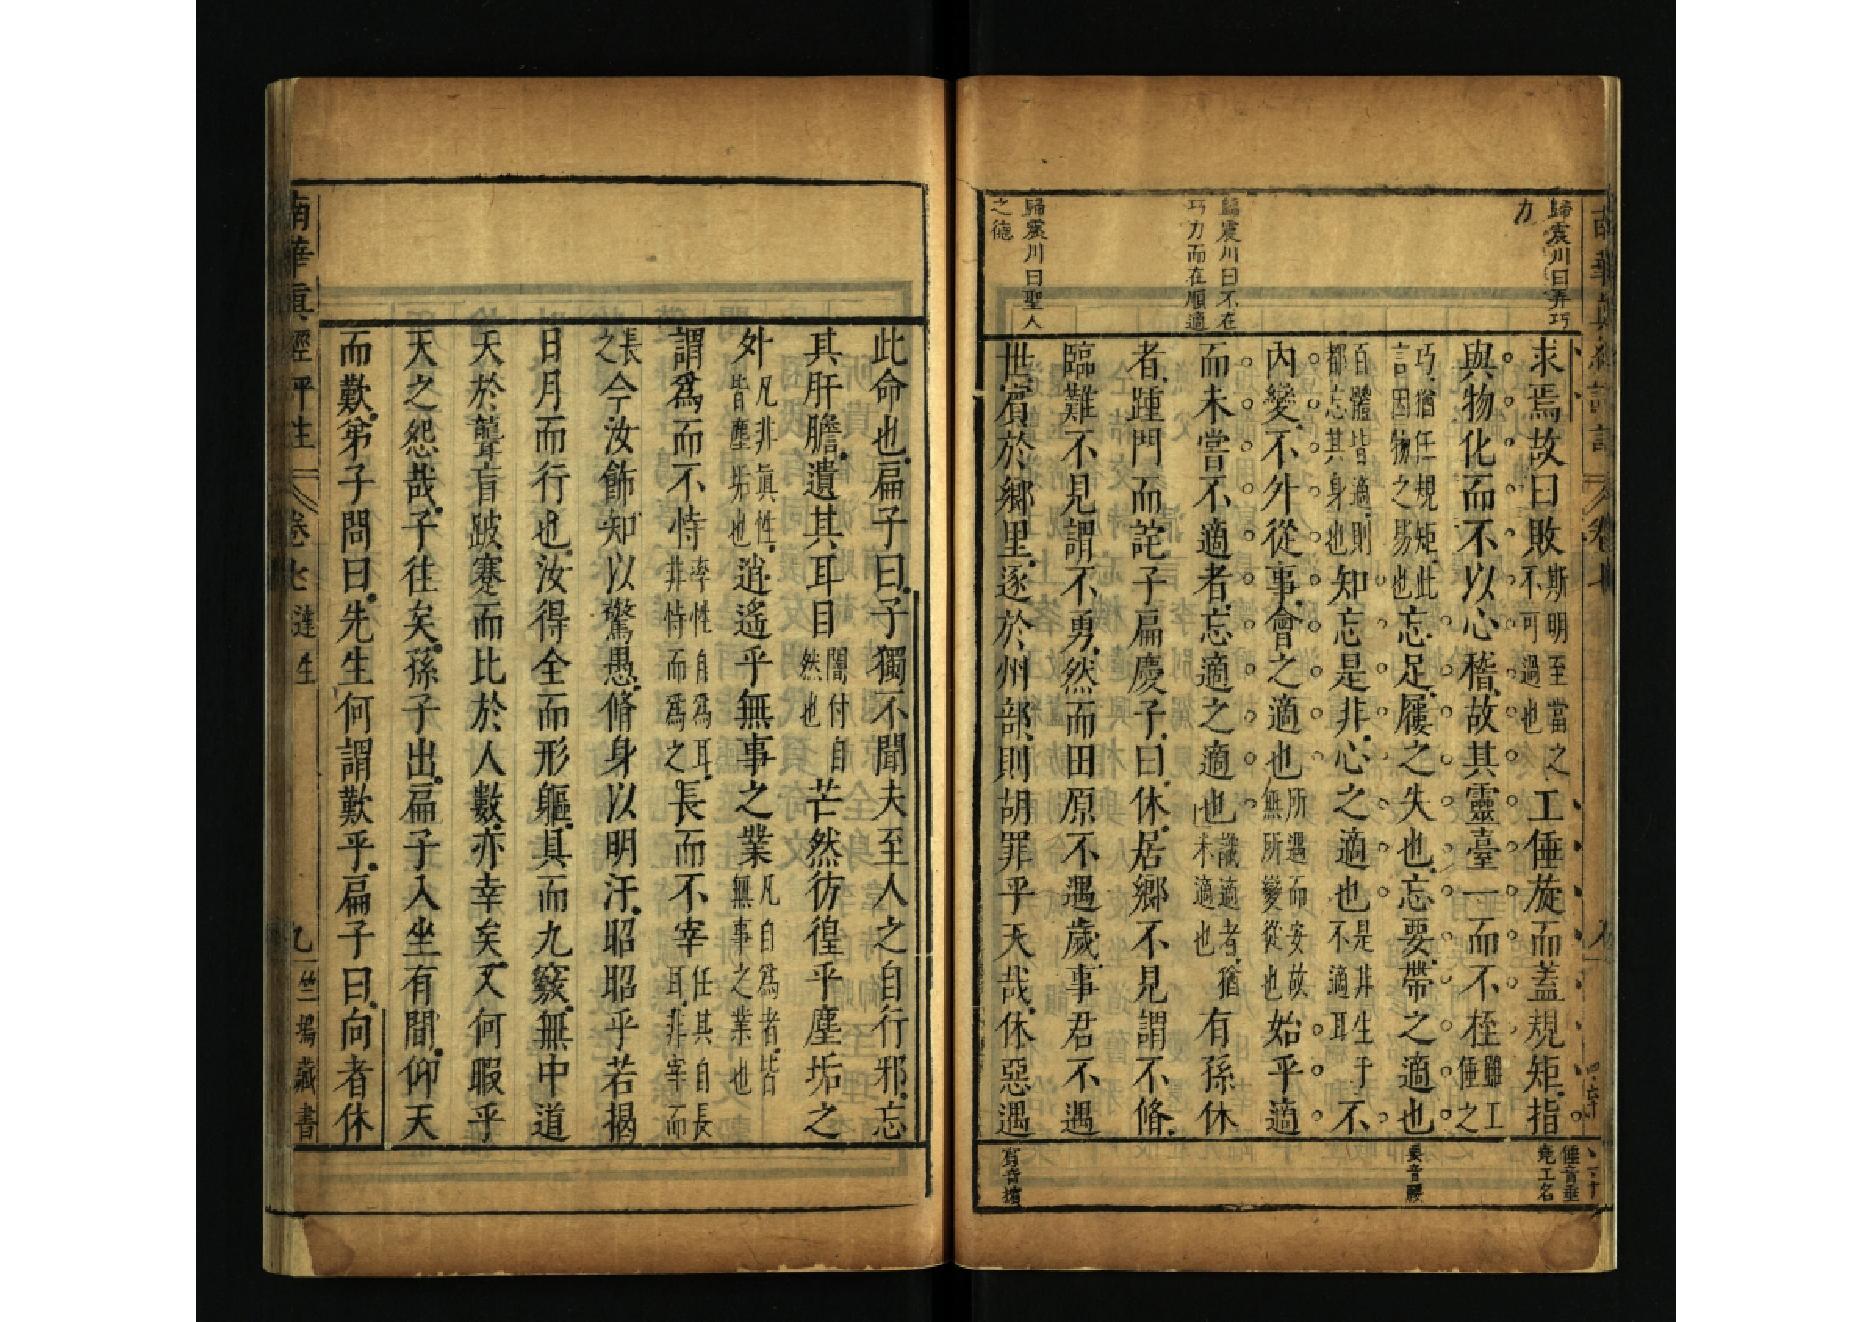 歸震川曰弄巧
力
歸震川曰不在
巧力而在順適
歸震川曰聖人
之德
求焉故曰敗斯明至當之不可過也工倕旋而蓋規矩指
與物化而不以心稽故其靈臺一而不桎雖工倕之
巧猶任規矩此言因物之易也忘足屨之失也忘要帶之適也
百體皆適則都忘其身也知忘是非心之適也是非生于不適耳不
內變不外從事會之適也所遇而安故無所變從也始乎適
而未嘗不適者忘適之適也識適者猶未適也有孫休
者踵門而詫子扁慶子曰休居鄉不見謂不脩
臨難不見謂不勇然而田原不遇歲事君不遇
世賓於鄉里逐於州部則胡罪乎天哉休惡遇
倕音垂
堯工名
要音腰
賓音擯
此命也扁子曰子獨不聞夫至人之自行邪忘
其肝膽遺其耳目闇付自然也芒然彷徨乎塵垢之
外凡非真性皆塵垢也逍遙乎無事之業凡自為者皆無事之業也是
謂為而不恃率性自為耳非恃而為之長而不宰任其自長耳非宰而
長之今汝飾知以驚愚脩身以明汙昭昭乎若揭
日月而行也汝得全而形軀具而九竅無中道
夭於聾盲跛蹇而比於人數亦幸矣又何暇乎
天之怨哉子往矣孫子出扁子入坐有間仰天
而歎弟子問曰先生何謂歎乎扁子曰向者休
南華真經評註 卷七 達生 九 竺塢藏書